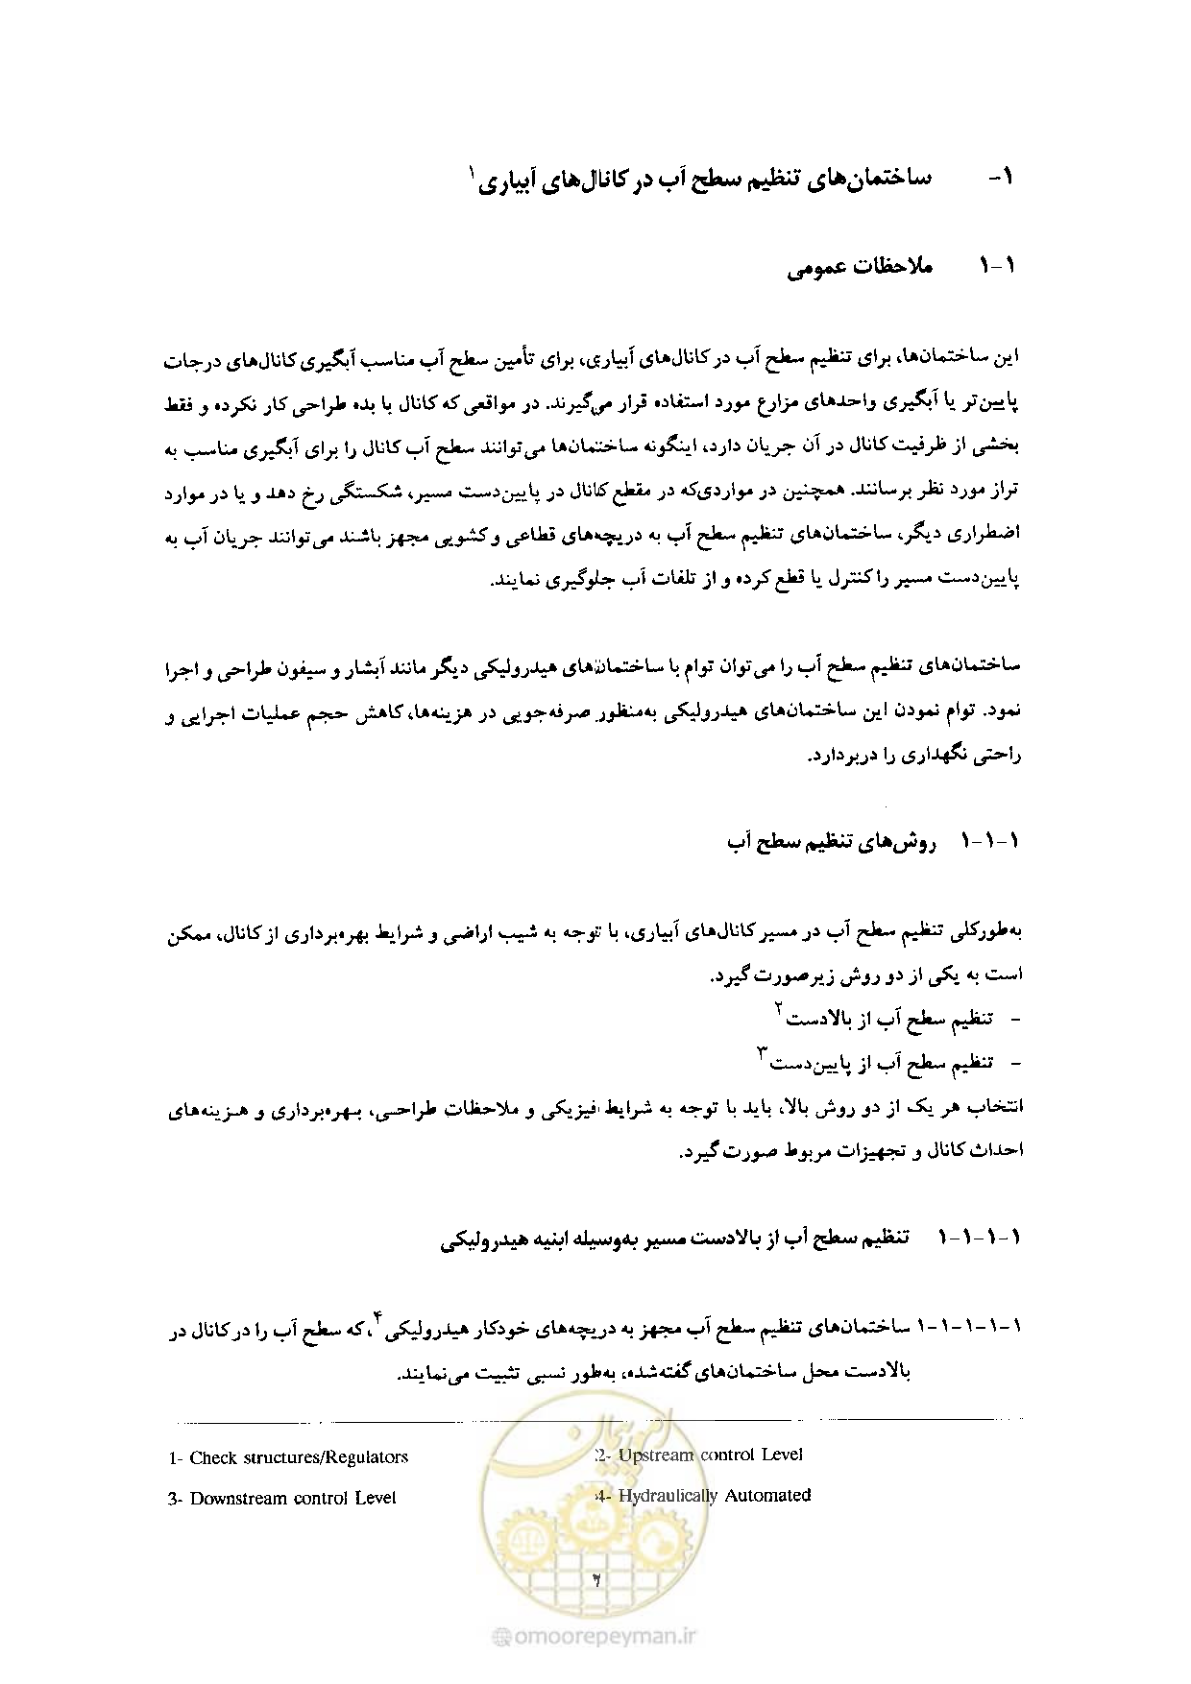 ۱- ساختمان‌های تنظیم سطح آب در کانال‌های آبیاری۱
۱-۱ ملاحظات عمومی
این ساختمان‌ها، برای تنظیم سطح آب در کانال‌های آبیاری، برای تأمین سطح آب مناسب آبگیری کانال‌های درجات
پایین‌تر یا آبگیری واحدهای مزارع مورد استفاده قرار می‌گیرند. در مواقعی که کانال با بده طراحی کار نکرده و فقط
بخشی از ظرفیت کانال در آن جریان دارد، اینگونه ساختمان‌ها می‌توانند سطح آب کانال را برای آبگیری مناسب به
تراز مورد نظر برسانند. همچنین در مواردی‌که در مقطع کانال در پایین‌دست مسیر، شکستگی رخ دهد و یا در موارد
اضطراری دیگر، ساختمان‌های تنظیم سطح آب به دریچه‌های قطاعی و کشویی مجهز باشند می‌توانند جریان آب به
پایین‌دست مسیر را کنترل یا قطع کرده و از تلفات آب جلوگیری نمایند.
ساختمان‌های تنظیم سطح آب را می‌توان توام با ساختمان‌های هیدرولیکی دیگر مانند آبشار و سیفون طراحی و اجرا
نمود. توام نمودن این ساختمان‌های هیدرولیکی به‌منظور صرفه‌جویی در هزینه‌ها، کاهش حجم عملیات اجرایی و
راحتی نگهداری را دربردارد.
۱-۱-۱ روش‌های تنظیم سطح آب
به‌طورکلی تنظیم سطح آب در مسیر کانال‌های آبیاری، با توجه به شیب اراضی و شرایط بهره‌برداری از کانال، ممکن
است به یکی از دو روش زیر صورت گیرد.
- تنظیم سطح آب از بالادست۲
- تنظیم سطح آب از پایین‌دست۳
انتخاب هر یک از دو روش بالا، باید با توجه به شرایط فیزیکی و ملاحظات طراحی، بهره‌برداری و هزینه‌های
احداث کانال و تجهیزات مربوط صورت گیرد.
۱-۱-۱-۱ تنظیم سطح آب از بالادست مسیر به‌وسیله ابنیه هیدرولیکی
۱-۱-۱-۱-۱ ساختمان‌های تنظیم سطح آب مجهز به دریچه‌های خودکار هیدرولیکی۴، که سطح آب را در کانال در
بالادست محل ساختمان‌های گفته‌شده، به‌طور نسبی تثبیت می‌نمایند.
1- Check structures/Regulators 2- Upstream control Level
3- Downstream control Level 4- Hydraulically Automated
امور پیمان
@omoorepeyman.ir